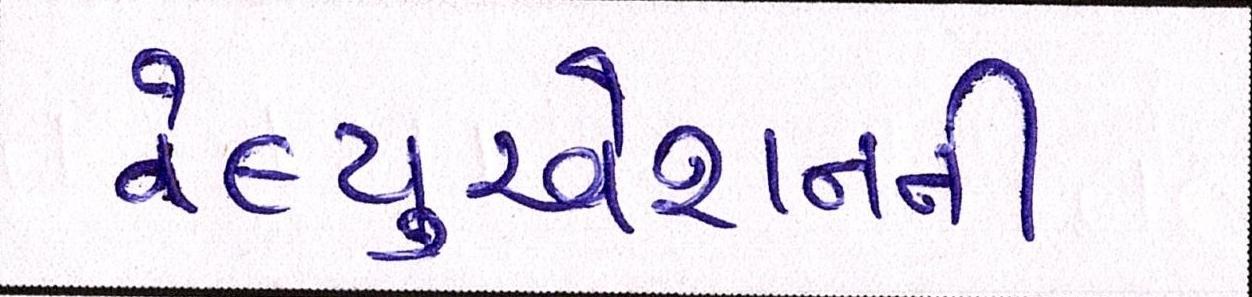 વેલ્યુએશનની